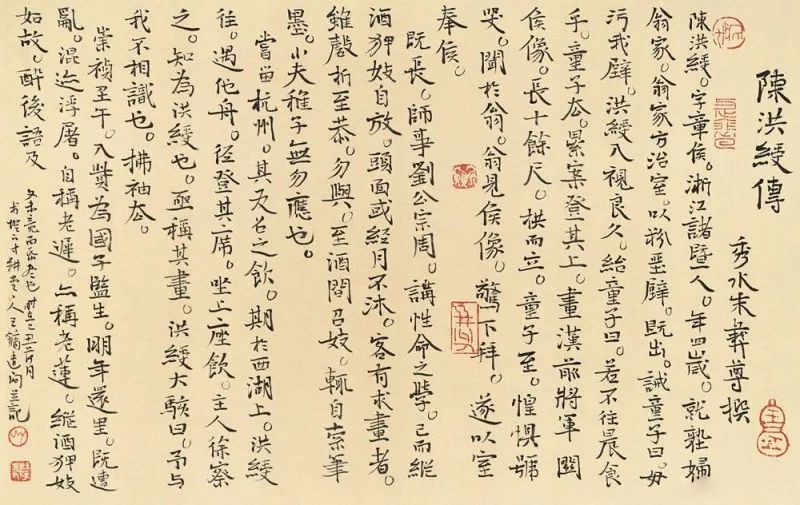 陳洪綬傳
秀水朱彝尊撰
陳洪綬。字章侯。浙江諸暨人。年四歲。就塾婦
翁家。翁家方治室。以粉堊壁。既出。誡童子曰。毋
污我壁。洪綬入視良久。紿童子曰。若不往晨食
乎。童子去。累案登其上。畫漢前將軍關
侯像。長十餘尺。拱而立。童子至。惶懼號
哭。聞於翁。翁見侯像。驚下拜。遂以室
奉侯。
既長。師事劉公宗周。講性命之學。已而縱
酒狎妓自放。頭面或經月不沐。客有求畫者。
雖罄折至恭。勿與。至酒間召妓。輒自索筆
墨。小夫稚子無勿應也。
嘗留杭州。其友召之飲。期於西湖上。洪綬
往。遇他舟。徑登其席。坐上座飲。主人徐察
之。知為洪綬也。亟稱其畫。洪綬大駭曰。予與
我不相識也。拂袖去。
崇禎壬午。入貲為國子監生。明年還里。既遭
亂。混迹浮屠。自稱老遲。亦稱老蓮。縱酒狎妓
如故。醉後語及
文未竟而紙 也 丑二月